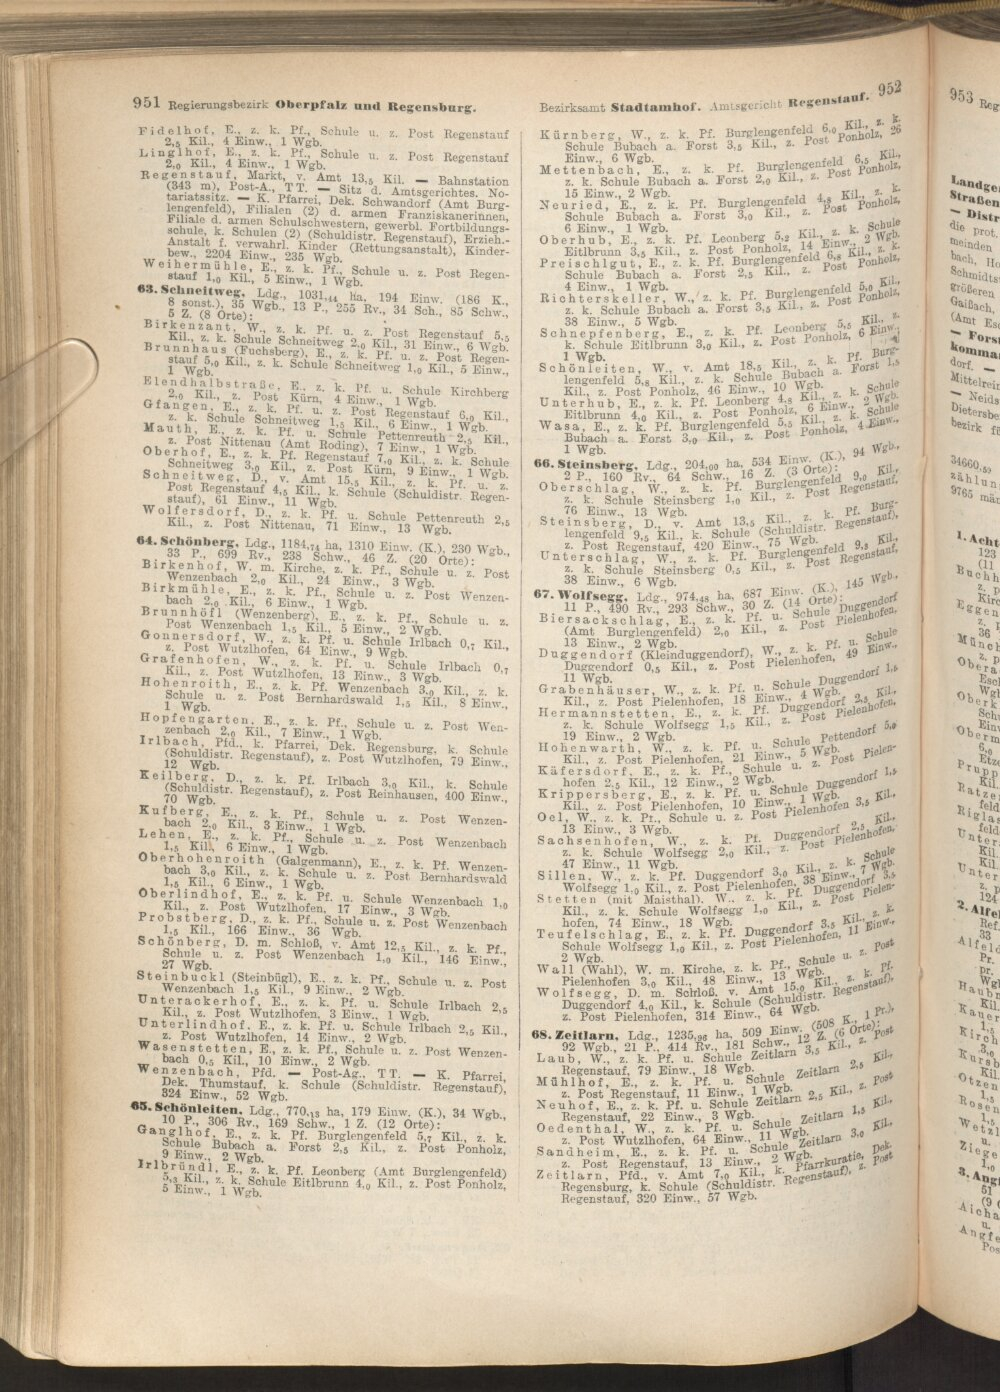 951 Regierungsbezirk Oberpfalz und Regensburg.
Fidelhof, E., z. k. Pf., Schule u. z. Post Regenstauf
2,5 Kil., 4 Einw., 1 Wgb.
Linglhof, E., z. k. Pf., Schule u. z. Post Regenstauf
2,0 Kil., 4 Einw., 1 Wgb.
Regenstauf, Markt, v. Amt 13,5 Kil. — Bahnstation
(343 m), Post-A., TT. — Sitz d. Amtsgerichtes. No-
tariatssitz. — K. Pfarrei, Dek. Schwandorf (Amt Burg-
lengenfeld), Filialen (2) d. armen Franziskanerinnen,
Filiale d. armen Schulschwestern, gewerbl. Fortbildungs-
schule, k. Schulen (2) (Schuldistr. Regenstauf), Erzieh.-
Anstalt f. verwahrl. Kinder (Rettungsanstalt), Kinder-
bew., 2204 Einw., 235 Wgb.
Weihermühle, E., z. k. Pf., Schule u. z. Post Regen-
stauf 1,0 Kil., 5 Einw., 1 Wgb.
63. Schneitweg, Ldg., 1031,44 ha, 194 Einw. (186 K.,
8 sonst.), 35 Wgb., 13 P., 255 Rv., 34 Sch., 85 Schw.,
5 Z. (8 Orte):
Birkenzant, W., z. k. Pf. u. z. Post Regenstauf 5,5
Kil., z. k. Schule Schneitweg 2,0 Kil., 31 Einw., 6 Wgb.
Brunnhaus (Fuchsberg), E., z. k. Pf. u. z. Post Regen-
stauf 5,0 Kil., z. k. Schule Schneitweg 1,0 Kil., 5 Einw.,
1 Wgb.
Elendhalbstraße, E., z. k. Pf. u. Schule Kirchberg
2,0 Kil., z. Post Kürn, 4 Einw., 1 Wgb.
Gfangen, E., z. k. Pf. u. z. Post Regenstauf 6,0 Kil.,
z. k. Schule Schneitweg 1,5 Kil., 6 Einw., 1 Wgb.
Mauth, E., z. k. Pf. u. Schule Pettenreuth 2,5 Kil.,
z. Post Nittenau (Amt Roding), 7 Einw., 1 Wgb.
Oberhof, E., z. k. Pf. Regenstauf 7,0 Kil., z. k. Schule
Schneitweg 3,0 Kil., z. Post Kürn, 9 Einw., 1 Wgb.
Schneitweg, D., v. Amt 15,5 Kil., z. k. Pf. u. z.
Post Regenstauf 4,5 Kil., k. Schule (Schuldistr. Regen-
stauf), 61 Einw., 11 Wgb.
Wolfersdorf, D., z. k. Pf. u. Schule Pettenreuth 2,5
Kil., z. Post Nittenau, 71 Einw., 13 Wgb.
64. Schönberg, Ldg., 1184,74 ha, 1310 Einw. (K.), 230 Wgb.,
33 P., 699 Rv., 238 Schw., 46 Z. (20 Orte):
Birkenhof, W. m. Kirche, z. k. Pf., Schule u. z. Post
Wenzenbach 2,0 Kil., 24 Einw., 3 Wgb.
Birkmühle, E., z. k. Pf., Schule u. z. Post Wenzen-
bach 2,0 Kil., 6 Einw., 1 Wgb.
Brunnhöfl (Wenzenberg), E., z. k. Pf., Schule u. z.
Post Wenzenbach 1,5 Kil., 5 Einw., 2 Wgb.
Gonnersdorf, W., z. k. Pf. u. Schule Irlbach 0,7 Kil.,
z. Post Wutzlhofen, 64 Einw., 9 Wgb.
Grafenhofen, W., z. k. Pf. u. Schule Irlbach 0,7
Kil., z. Post Wutzlhofen, 13 Einw., 3 Wgb.
Hohenroith, E., z. k. Pf. Wenzenbach 3,0 Kil., z. k.
Schule u. z. Post Bernhardswald 1,5 Kil., 8 Einw.,
1 Wgb.
Hopfengarten, E., z. k. Pf., Schule u. z. Post Wen-
zenbach 2,0 Kil., 7 Einw., 1 Wgb.
Irlbach, Pfd., k. Pfarrei, Dek. Regensburg, k. Schule
(Schuldistr. Regenstauf), z. Post Wutzlhofen, 79 Einw.,
12 Wgb.
Keilberg, D., z. k. Pf. Irlbach 3,0 Kil., k. Schule
(Schuldistr. Regenstauf), z. Post Reinhausen, 400 Einw.,
70 Wgb.
Kufberg, E., z. k. Pf., Schule u. z. Post Wenzen-
bach 2,0 Kil., 3 Einw., 1 Wgb.
Lehen, E., z. k. Pf., Schule u. z. Post Wenzenbach
1,5 Kil., 6 Einw., 1 Wgb.
Oberhohenroith (Galgenmann), E., z. k. Pf. Wenzen-
bach 3,0 Kil., z. k. Schule u. z. Post Bernhardswald
1,5 Kil., 6 Einw., 1 Wgb.
Oberlindhof, E., z. k. Pf. u. Schule Wenzenbach 1,0
Kil., z. Post Wutzlhofen, 17 Einw., 3 Wgb.
Probstberg, D., z. k. Pf., Schule u. z. Post Wenzenbach
1,5 Kil., 166 Einw., 36 Wgb.
Schönberg, D. m. Schloß, v. Amt 12,5 Kil., z. k. Pf.,
Schule u. z. Post Wenzenbach 1,0 Kil., 146 Einw.,
27 Wgb.
Steinbuckl (Steinbügl), E., z. k. Pf., Schule u. z. Post
Wenzenbach 1,5 Kil., 9 Einw., 2 Wgb.
Unterackerhof, E., z. k. Pf. u. Schule Irlbach 2,5
Kil., z. Post Wutzlhofen, 3 Einw., 1 Wgb.
Unterlindhof, E., z. k. Pf. u. Schule Irlbach 2,5 Kil.,
z. Post Wutzlhofen, 14 Einw., 2 Wgb.
Wasenstetten, E., z. k. Pf., Schule u. z. Post Wenzen-
bach 0,5 Kil., 10 Einw., 2 Wgb.
Wenzenbach, Pfd. — Post-Ag., TT. — K. Pfarrei,
Dek. Thumstauf, k. Schule (Schuldistr. Regenstauf),
324 Einw., 52 Wgb.
65. Schönleiten, Ldg., 770,13 ha, 179 Einw. (K.), 34 Wgb.,
10 P., 306 Rv., 169 Schw., 1 Z. (12 Orte):
Ganglhof, E., z. k. Pf. Burglengenfeld 5,7 Kil., z. k.
Schule Bubach a. Forst 2,5 Kil., z. Post Ponholz,
9 Einw., 2 Wgb.
Irlbründl, E., z. k. Pf. Leonberg (Amt Burglengenfeld)
5,3 Kil., z. k. Schule Eitlbrunn 4,0 Kil., z. Post Ponholz,
5 Einw., 1 Wgb.
Bezirksamt Stadtamhof. Amtsgericht Regenstauf. 952
Kürnberg, W., z. k. Pf. Burglengenfeld 6,0 Kil., z. k.
Schule Bubach a. Forst 3,5 Kil., z. Post Ponholz, 26
Einw., 6 Wgb.
Mettenbach, E., z. k. Pf. Burglengenfeld 6,5 Kil.,
z. k. Schule Bubach a. Forst 2,0 Kil., z. Post Ponholz,
15 Einw., 2 Wgb.
Neuried, E., z. k. Pf. Burglengenfeld 4,8 Kil., z. k.
Schule Bubach a. Forst 3,0 Kil., z. Post Ponholz,
6 Einw., 1 Wgb.
Oberhub, E., z. k. Pf. Leonberg 5,2 Kil., z. k. Schule
Eitlbrunn 3,5 Kil., z. Post Ponholz, 14 Einw., 2 Wgb.
Preischlgut, E., z. k. Pf. Burglengenfeld 6,8 Kil., z. k.
Schule Bubach a. Forst 2,5 Kil., z. Post Ponholz,
4 Einw., 1 Wgb.
Richterskeller, W., z. k. Pf. Burglengenfeld 5,0 Kil.,
z. k. Schule Bubach a. Forst 3,5 Kil., z. Post Ponholz,
38 Einw., 5 Wgb.
Schnepfenberg, E., z. k. Pf. Leonberg 5,5 Kil., z.
k. Schule Eitlbrunn 3,0 Kil., z. Post Ponholz, 6 Einw.,
1 Wgb.
Schönleiten, W., v. Amt 18,5 Kil., z. k. Pf. Burg-
lengenfeld 5,8 Kil., z. k. Schule Bubach a. Forst 1,5
Kil., z. Post Ponholz, 46 Einw., 10 Wgb.
Unterhub, E., z. k. Pf. Leonberg 4,8 Kil., z. k. Schule
Eitlbrunn 4,0 Kil., z. Post Ponholz, 6 Einw., 2 Wgb.
Wasa, E., z. k. Pf. Burglengenfeld 5,5 Kil., z. k. Schule
Bubach a. Forst 3,0 Kil., z. Post Ponholz, 4 Einw.,
1 Wgb.
66. Steinsberg, Ldg., 204,00 ha, 534 Einw. (K.), 94 Wgb.,
2 P., 160 Rv., 64 Schw., 16 Z. (3 Orte):
Oberschlag, W., z. k. Pf. Burglengenfeld 9,0 Kil.,
z. k. Schule Steinsberg 1,0 Kil., z. Post Regenstauf,
76 Einw., 13 Wgb.
Steinsberg, D., v. Amt 13,5 Kil., z. k. Pf. Burg-
lengenfeld 9,5 Kil., k. Schule (Schuldistr. Regenstauf),
z. Post Regenstauf, 420 Einw., 75 Wgb.
Unterschlag, W., z. k. Pf. Burglengenfeld 9,8 Kil.,
z. k. Schule Steinsberg 0,5 Kil., z. Post Regenstauf,
38 Einw., 6 Wgb.
67. Wolfsegg, Ldg., 974,48 ha, 687 Einw. (K.), 145 Wgb.,
11 P., 490 Rv., 293 Schw., 30 Z. (14 Orte):
Biersackschlag, E., z. k. Pf. u. Schule Duggendorf
(Amt Burglengenfeld) 2,0 Kil., z. Post Pielenhofen,
13 Einw., 2 Wgb.
Duggendorf (Kleinduggendorf), W., z. k. Pf. u. Schule
Duggendorf 0,5 Kil., z. Post Pielenhofen, 49 Einw.,
11 Wgb.
Grabenhäuser, W., z. k. Pf. u. Schule Duggendorf 1,5
Kil., z. Post Pielenhofen, 18 Einw., 4 Wgb.
Hermannstetten, E., z. k. Pf. Duggendorf 2,5 Kil.,
z. k. Schule Wolfsegg 1,5 Kil., z. Post Pielenhofen,
19 Einw., 2 Wgb.
Hohenwarth, W., z. k. Pf. u. Schule Pettendorf 5,0
Kil., z. Post Pielenhofen, 21 Einw., 5 Wgb.
Käfersdorf, E., z. k. Pf., Schule u. z. Post Pielen-
hofen 2,5 Kil., 12 Einw., 2 Wgb.
Krippersberg, E., z. k. Pf. u. Schule Duggendorf 1,5
Kil., z. Post Pielenhofen, 10 Einw., 1 Wgb.
Oel, W., z. k. Pf., Schule u. z. Post Pielenhofen 3,5 Kil.,
13 Einw., 3 Wgb.
Sachsenhofen, W., z. k. Pf. Duggendorf 2,5 Kil.,
z. k. Schule Wolfsegg 2,0 Kil., z. Post Pielenhofen,
47 Einw., 11 Wgb.
Sillen, W., z. k. Pf. Duggendorf 3,0 Kil., z. k. Schule
Wolfsegg 1,0 Kil., z. Post Pielenhofen, 38 Einw., 7 Wgb.
Stetten (mit Maisthal), W., z. k. Pf. Duggendorf 3,5
Kil., z. k. Schule Wolfsegg 1,0 Kil., z. Post Pielen-
hofen, 74 Einw., 18 Wgb.
Teufelschlag, E., z. k. Pf. Duggendorf 3,5 Kil., z. k.
Schule Wolfsegg 1,0 Kil., z. Post Pielenhofen, 11 Einw.,
2 Wgb.
Wall (Wahl), W. m. Kirche, z. k. Pf., Schule u. z. Post
Pielenhofen 3,0 Kil., 48 Einw., 13 Wgb.
Wolfsegg, D. m. Schloß, v. Amt 15,0 Kil., z. k. Pf.
Duggendorf 4,0 Kil., k. Schule (Schuldistr. Regenstauf),
z. Post Pielenhofen, 314 Einw., 64 Wgb.
68. Zeitlarn, Ldg., 1235,98 ha, 509 Einw. (508 K., 1 Pr.),
92 Wgb., 21 P., 414 Rv., 181 Schw., 12 Z. (6 Orte):
Laub, W., z. k. Pf. u. Schule Zeitlarn 3,5 Kil., z. Post
Regenstauf, 79 Einw., 18 Wgb.
Mühlhof, E., z. k. Pf. u. Schule Zeitlarn 2,5 Kil.,
z. Post Regenstauf, 11 Einw., 1 Wgb.
Neuhof, E., z. k. Pf. u. Schule Zeitlarn 2,5 Kil., z. Post
Regenstauf, 22 Einw., 3 Wgb.
Oedenthal, W., z. k. Pf. u. Schule Zeitlarn 1,5 Kil.,
z. Post Wutzlhofen, 64 Einw., 11 Wgb.
Sandheim, E., z. k. Pf. u. Schule Zeitlarn 3,0 Kil.,
z. Post Regenstauf, 13 Einw., 2 Wgb.
Zeitlarn, Pfd., v. Amt 7,0 Kil., k. Pfarrkuratie, Dek.
Regensburg, k. Schule (Schuldistr. Regenstauf), z. Post
Regenstauf, 320 Einw., 57 Wgb.
953 Reg
Landge
Straßen
— Distr
die prot.
meinden
bach, Ho
Schmidts
größeren
Gaißach,
(Amt Es
— Fors
komma
dorf. —
Mittelrei
— Neids
Dietersbe
bezirk f
34660,59
zählun
9765 män
1. Acht
123
(11
Buchh
z. p
Kir
Eggen
z. p
36
Münc
z. p
Obera
Esc
Wg
Oberk
Sch
Ein
Oberm
6,0
Etz
Prupp
Kil.
Ratze
feld
Riglas
feld
Unter
Kil.
Kil.
Unter
z. p
124
2. Alfe
Ref.
33
Alfeld
Pr.
pr.
Wg
Haubn
Kil.
Kauer
1,5
Kirch
3,0
Kursb
Kil.
Otzen
1,5
Rosen
1,5
Wetzl
u.
Ziege
1,0
3. Ang
51
(9
Aicha
u.
Angfe
Pos